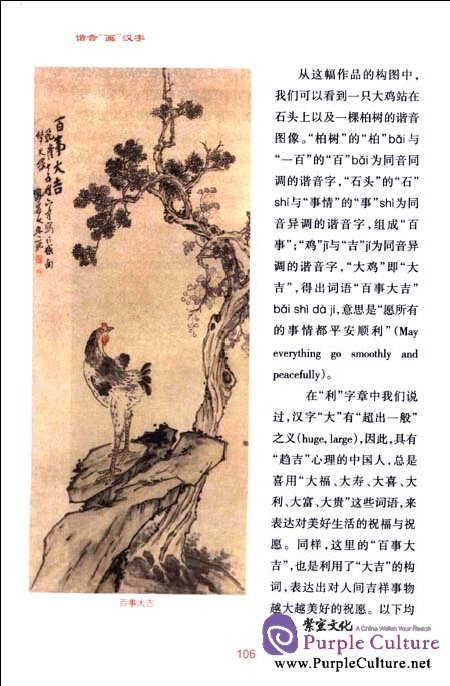 谐音“画”汉字
百事大吉
从这幅作品的构图中，
我们可以看到一只大鸡站在
石头上以及一棵柏树的谐音
图像。“柏树”的“柏”bǎi与
“一百”的“百”bǎi为同音同
调的谐音字，“石头”的“石”
shí与“事情”的“事”shì为同
音异调的谐音字，组成“百
事”；“鸡”jī与“吉”jí为同音异
调的谐音字，“大鸡”即“大
吉”，得出词语“百事大吉”
bǎi shì dà jí，意思是“愿所有
的事情都平安顺利”（May
everything go smoothly and
peacefully）。
在“利”字章中我们说
过，汉字“大”有“超出一般”
之义（huge, large），因此，具有
“趋吉”心理的中国人，总是
喜用“大福、大寿、大喜、大
利、大富、大贵”这些词语，来
表达对美好生活的祝福与祝
愿。同样，这里的“百事大
吉”，也是利用了“大吉”的构
词，表达出对人间吉祥事物
越大越美好的祝愿。以下均
百事大吉
106
紫室文化 A China Within Your Reach
Purple Culture
www.PurpleCulture.net